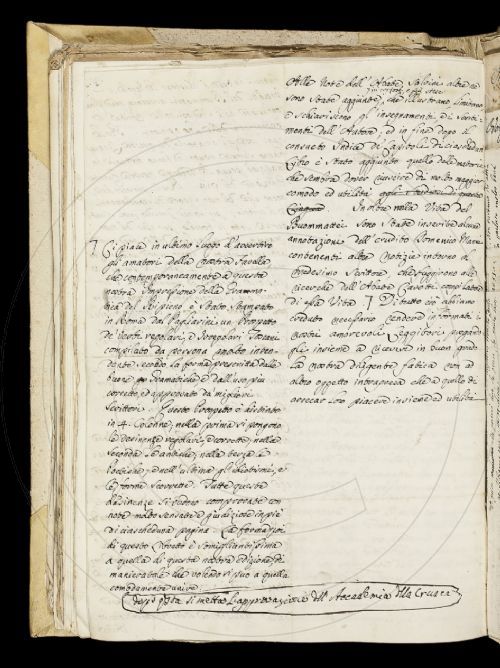 Alle Note dell'Abate Salvini altre ne
sono state aggiunte, che illustrano
e schiariscono gl'insegnamenti, e i senti-
menti dell'Autore, ed in fine dopo il
consueto Indice de Capitoli di ciascedun
Libro è stato aggiunto quello delle materie
che sembra dover riuscire di molto maggior
comodo ed utilità agli studiosi di questa
Lingua. Inoltre nella Vita del
Buommattei sono state inserite alcune
annotazioni dell'erudito Domenico Man
contenenti altre Notizie intorno al
medesimo Scrittore che sfuggirono alle
ricerche dell'Abate Casotti compilatore
di essa Vita 7 Di tutto ciò abbiamo
creduto necessario rendere informati i
nostri amorevoli Leggitori, pregando
gli insieme a ricevere in buon grado
la nostra diligente fatica non ad
altro oggetto intrapresa che a quello di
arrecar loro piacere insieme ed utilità
7 Ci piace in ultimo luogo d'avvertire
gli amatori della nostra favella
che contemporaneamente a questa
nostra Impressione della Gramma-
tica del è stato stampato
in Roma dal Pagliarini un Prospetto
de' Verbi regolari, e irregolari Toscani
compilato da persona molto inten-
dente secondo la forma prescritta dalle
buone Grammatiche e dall'uso più
corretto, ed approvato da migliori
Scrittori. Questo Prospetto è distinto
in 4. Colonne, nella prima si pongono
le desinenze regolari, e corrette, nella
seconda le antiche, nella terza le
poetiche, e nell'ultima gl'idiotismi, e
le forme scorrette. Tutte queste
desinenze si vedono comprovate con
note molto sensate e giudiziose in piè
di ciascheduna pagina. La forma poi
di questo Libretto è somigliantissima
a quella di questa nostra edizione, di
maniera tale che volendo si può a quella
comodamente unire.
dopo q.sta si metta l'approvazione dell'Accademia della Crusca